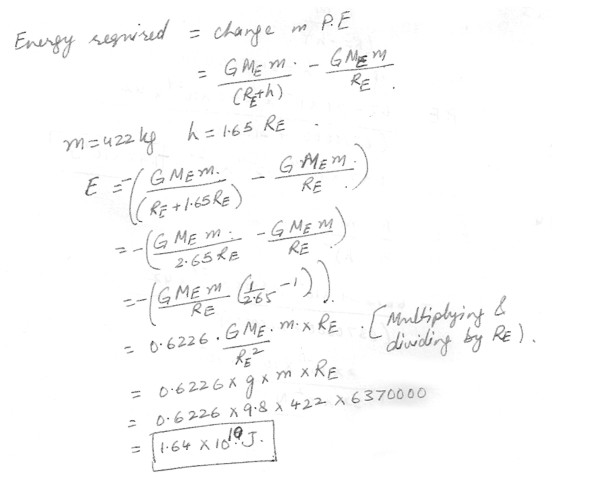 Energy required = change in P.E
= GMEm / (RE+h) - GMEm / RE.
m=422 kg h = 1.65 RE.
E = -(GMEm. / (RE+1.65RE) - GMEm. / RE.)
= -(GMEm. / 2.65RE - GMEm / RE)
= -(GMEm / RE (1/2.65 -1)).
= 0.6226 . GME.m.×RE / RE² . [Multiplying & dividing by RE).
= 0.6226 × g × m × RE
= 0.6226 × 9.8 × 422 × 6370000
= 1.64 × 10¹⁰ J.